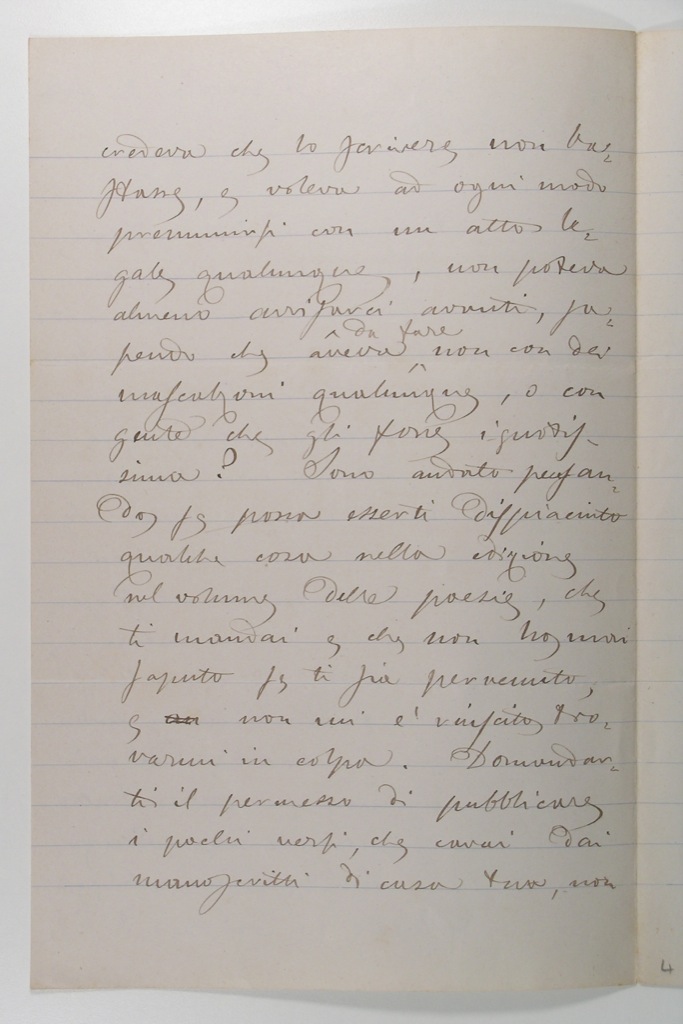 credeva che lo scrivere non ba-
stasse, e voleva ad ogni modo
premunirsi con un atto le-
gale qualunque, non poteva
almeno avvisarci avanti, sa-
pendo che aveva da fare non con dei
mascalzoni qualunque, o con
gente che gli fosse ignotis-
sima? Sono andato pensan-
do, se possa esserti dispiaciuto
qualche cosa nella edizione
nel volume delle poesie, che
ti mandai e che non ho mai
saputo se ti sia pervenuto,
e non mi e' riuscito tro-
varmi in colpa. Domandar-
ti il permesso di pubblicare
i pochi versi, che cavai dai
manoscritti di casa tua, non
4